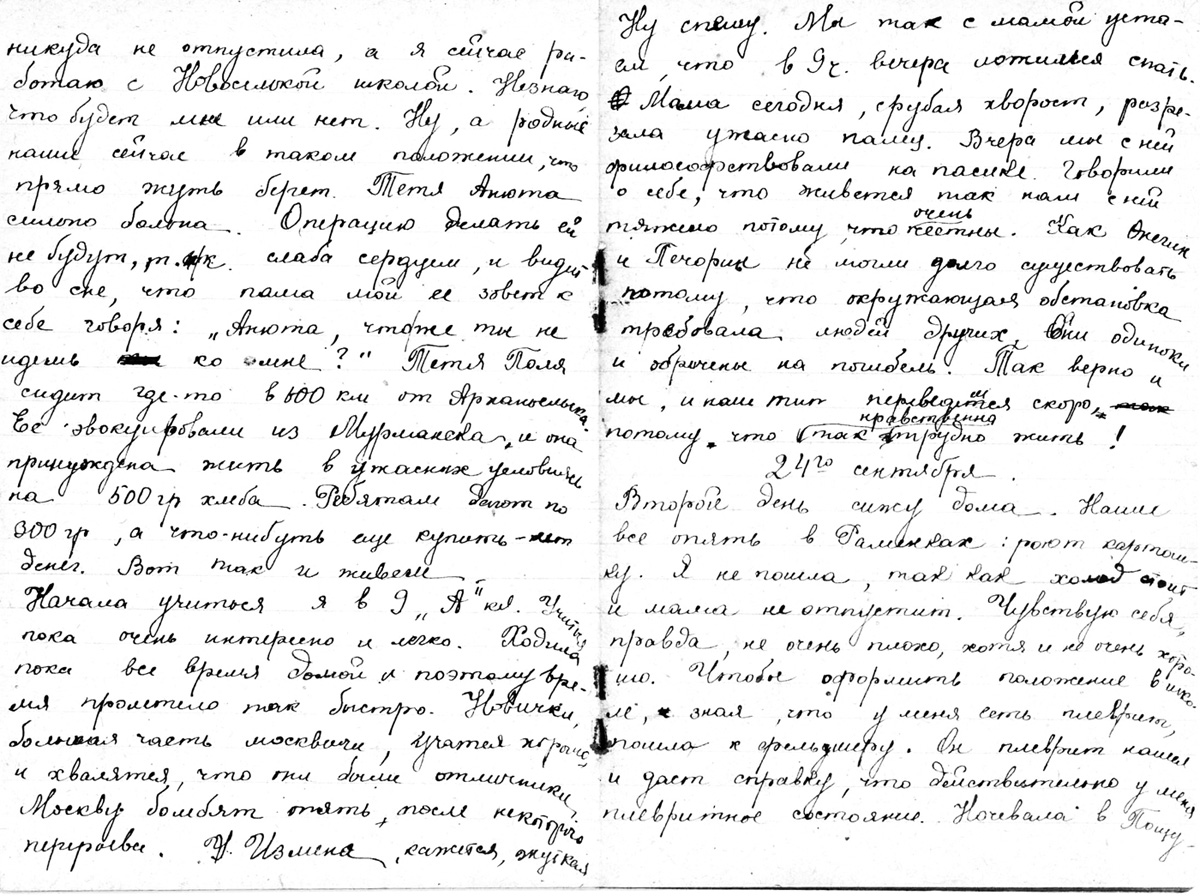 никуда не отпустила, а я сейчас ра-
ботаю с Новосельской школой. Незнаю,
что будет мне или нет. Ну, а родные
наши сейчас в таком положении, что
прямо жуть берет. Тетя Анюта
сильно больна. Операцию делать ей
не будут, т.к. слаба сердцем, и видит
во сне, что папа мой ее зовет к
себе говоря: „Анюта, что же ты не
идешь ко мне?" Тетя Поля
сидит где-то в 600 км от Архангельска.
Её эвокуировали из Мурманска, и она
принуждена жить в ужасных условиях
на 500 гр хлеба. Ребятам дают по
300 гр, а что-нибуть еще купить - нет
денег. Вот так и живем.
Начала учиться я в 9 „А" кл. Учиться
пока очень интересно и легко. Ходила
пока все время домой и поэтому вре-
мя пролетело так быстро. Новички,
большая часть москвичи, учатся хорошо,
и хвалятся, что они были отличники.
Москву бомбят опять, после некоторого
перерыва. Измена, кажется, жуткая
Ну спешу. Мы так с мамой уста-
ем, что в 9 ч. вечера ложимся спать.
Мама сегодня, срубая хворост, разре-
зала ужасно палец. Вчера мы с ней
философствовали на пасике. Говорили
о себе, что живется так нам с ней
тяжело потому, что очень честны. Как Онегин
и Печорин не могли долго существовать
потому, что окружающая обстановка
требовала людей других. Они одиноки
и обречены на погибель. Так верно и
мы, и наш тип переведется скоро,
потому что так нравственно трудно жить!
24го сентября.
Второй день сижу дома. Наши
все опять в Раменках: роют картош-
ку. Я не пошла, так как холод стоит
и мама не отпустит. Чувствую себя,
правда, не очень плохо, хотя и не очень хоро-
шо. Чтобы оформить положение в шко-
ле, зная, что у меня есть плеврит,
пошла к фельдшеру. Он плеврит нашел
и даст справку, что действительно у меня
плевритное состояние. Ночевала в Пощу-